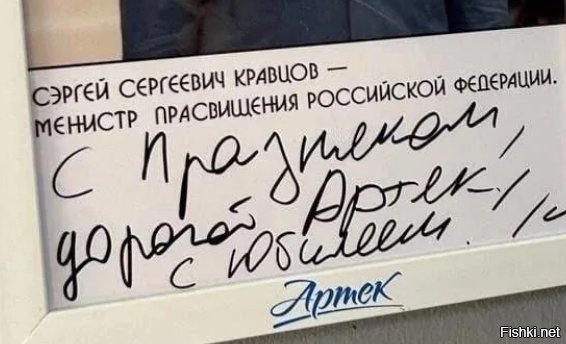 СЭРГЕЙ СЕРГЕЕВИЧ КРАВЦОВ —
МЕНИСТР ПРАСВИЩЕНИЯ РОССИЙСКОЙ ФЕДЕРАЦИИ.
С Праздником,
дорогой Артек!
с Юбилеем!
Артек
Fishki.net